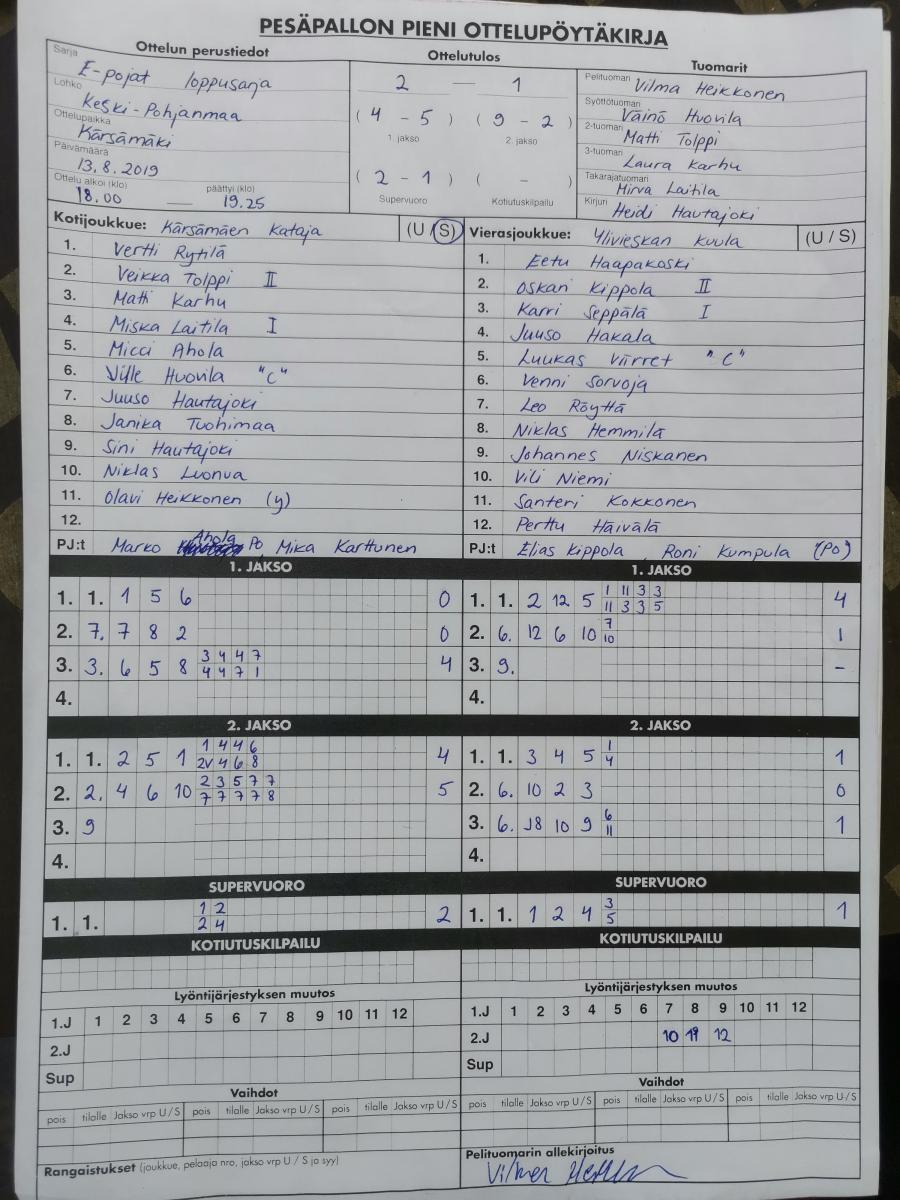 PESÄPALLON PIENI OTTELUPÖYTÄKIRJA
Ottelun perustiedot
Sarja E-pojat loppusarja
Lohko Keski-Pohjanmaa
Ottelupaikka Kärsämäki
Päivämäärä 13.8.2019
Ottelu alkoi (klo) 18.00 — päättyi (klo) 19.25
Ottelutulos
2 — 1
( 4 - 5 ) ( 9 - 2 )
1. jakso 2. jakso
( 2 - 1 ) ( - )
Supervuoro Kotiutuskilpailu
Tuomarit
Pelituomari Vilma Heikkonen
Syöttötuomari Väinö Huovila
2-tuomari Matti Tolppi
3-tuomari Laura Karhu
Takarajatuomari Mirva Laitila
Kirjuri Heidi Hautajoki
Kotijoukkue: Kärsämäen Kataja (U / S)
1. Vertti Rytilä
2. Veikka Tolppi II
3. Matti Karhu
4. Miska Laitila I
5. Micci Ahola
6. Ville Huovila "C"
7. Juuso Hautajoki
8. Janika Tuohimaa
9. Sini Hautajoki
10. Niklas Luonua
11. Olavi Heikkonen (y)
12.
PJ:t Marko Ahola Po Mika Karttunen
Vierasjoukkue: Ylivieskan Kuula (U / S)
1. Eetu Haapakoski
2. Oskari Kippola II
3. Karri Seppälä I
4. Juuso Hakala
5. Luukas Viirret "C"
6. Venni Sorvoja
7. Leo Röyttä
8. Niklas Hemmilä
9. Johannes Niskanen
10. Vili Niemi
11. Santeri Kokkonen
12. Perttu Häivälä
PJ:t Elias Kippola Roni Kumpula (Po)
1. JAKSO
1. 1. 1 5 6 0
2. 7. 7 8 2 0
3. 3. 6 5 8 3 4 4 7 4
4 4 7 1
4.
1. JAKSO
1. 1. 2 12 5 1 11 3 3 4
11 3 3 5
2. 6. 12 6 10 7 1
10
3. 9. -
4.
2. JAKSO
1. 1. 2 5 1 1 4 4 6 4
2V 4 6 8
2. 2. 4 6 10 2 3 5 7 7 5
7 7 7 7 8
3. 9
4.
2. JAKSO
1. 1. 3 4 5 1 1
4
2. 6. 10 2 3 0
3. 6. 10 9 6 1
11
4.
SUPERVUORO
1. 1. 1 2 2
2 4
SUPERVUORO
1. 1. 1 2 4 3 1
5
KOTIUTUSKILPAILU
KOTIUTUSKILPAILU
Lyöntijärjestyksen muutos
1.J 1 2 3 4 5 6 7 8 9 10 11 12
2.J
Sup
Lyöntijärjestyksen muutos
1.J 1 2 3 4 5 6 7 8 9 10 11 12
2.J 10 11 12
Sup
Vaihdot
pois tilalle Jakso vrp U / S pois tilalle Jakso vrp U / S pois tilalle Jakso vrp U / S
Vaihdot
pois tilalle Jakso vrp U / S pois tilalle Jakso vrp U / S pois tilalle Jakso vrp U / S
Rangaistukset (joukkue, pelaaja nro, jakso vrp U / S ja syy)
Pelituomarin allekirjoitus